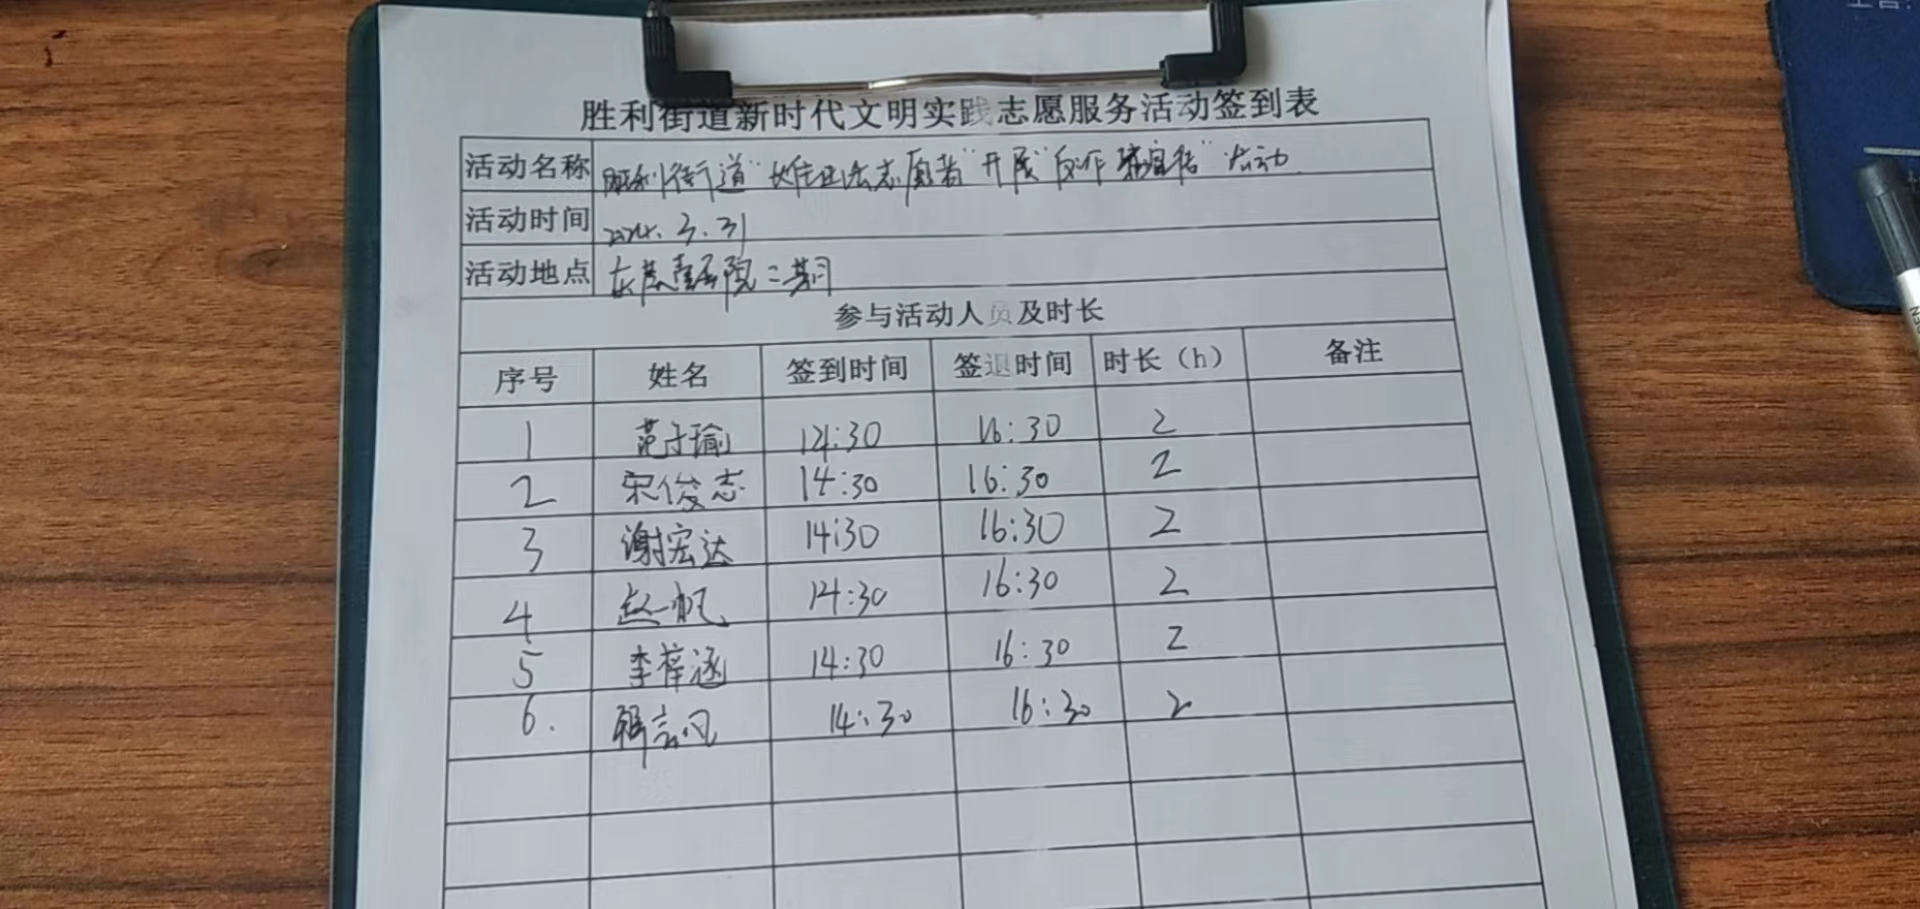 胜利街道新时代文明实践志愿服务活动签到表
活动名称 胜利街道"大在田法志愿者"开展"反诈 宣传"活动
活动时间 2024.3.31
活动地点 院二期
参与活动人员及时长
序号 姓名 签到时间 签退时间 时长（h） 备注
1 范子瑜 14:30 16:30 2
2 宋俊志 14:30 16:30 2
3 谢宏达 14:30 16:30 2
4 赵一帆 14:30 16:30 2
5 李梓涵 14:30 16:30 2
6. 韩言凡 14:30 16:30 2